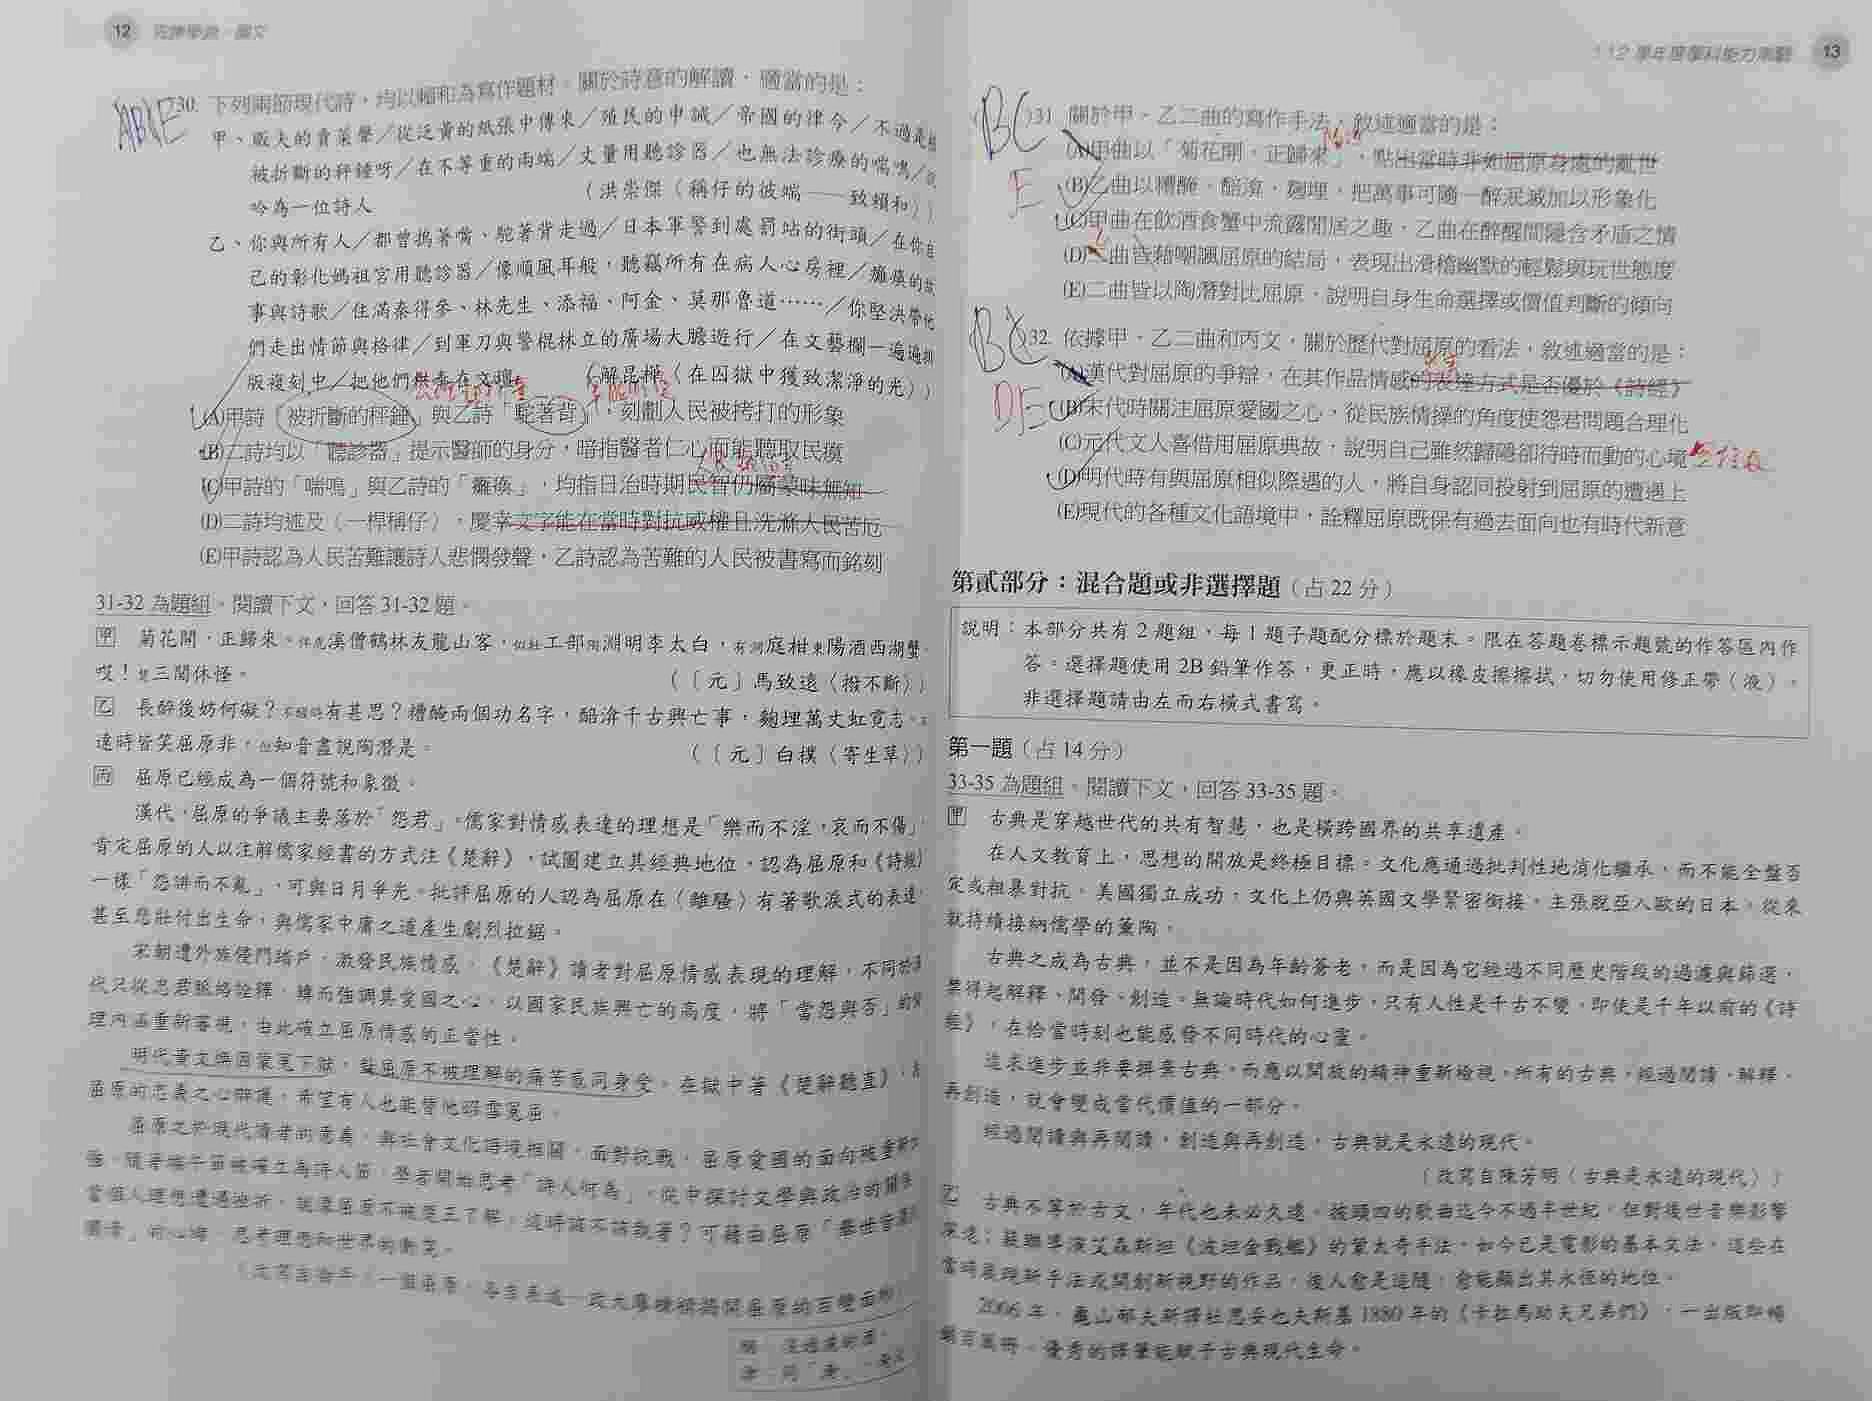 12
13
ABE
30. 下列兩節現代詩，均以賴和為寫作題材。關於詩意的解讀，適當的是：
甲、販夫的賣菜聲／從泛黃的紙張中傳來／殖民的申誡／帝國的律令／不過是
被折斷的秤錘呀／在不等重的兩端／丈量用聽診器／也無法診療的喘鳴／
吟為一位詩人
（洪崇傑〈稱仔的彼端——致賴和〉）
乙、你與所有人／都曾摀著嘴、駝著背走過／日本軍警到處罰站的街頭／在你自
己的彰化媽祖宮用聽診器／像順風耳般，聽竊所有在病人心房裡／癱瘓的故
事與詩歌／住滿秦得參、林先生、添福、阿金、莫那魯道……／你堅決帶他
們走出情節與格律／到軍刀與警棍林立的廣場大膽遊行／在文藝欄一遍遍排
版複刻中／把他們供奉在文壇
（解昆樺〈在囚獄中獲致潔淨的光〉）
(A)甲詩「被折斷的秤錘」與乙詩「駝著背」，刻劃人民被拷打的形象
(B)二詩均以「聽診器」提示醫師的身分，暗指醫者仁心而能聽取民瘼
(C)甲詩的「喘鳴」與乙詩的「癱瘓」，均指日治時期民智仍屬蒙昧無知
(D)二詩均述及〈一桿稱仔〉，慶幸文字能在當時對抗威權且洗滌人民苦厄
(E)甲詩認為人民苦難讓詩人悲憫發聲，乙詩認為苦難的人民被書寫而銘刻
31-32 為題組。閱讀下文，回答 31-32 題。
甲 菊花開，正歸來。伴虎溪僧鶴林友龍山客，似杜工部陶淵明李太白，有洞庭柑東陽酒西湖蟹。
哎！楚三閭休怪。
（〔元〕馬致遠〈撥不斷〉）
乙 長醉後妨何礙？不醒時有甚思？糟醃兩個功名字，醅渰千古興亡事，麴埋萬丈虹霓志。不
達時皆笑屈原非，但知音盡說陶潛是。
（〔元〕白樸〈寄生草〉）
丙 屈原已經成為一個符號和象徵。
漢代，屈原的爭議主要落於「怨君」。儒家對情感表達的理想是「樂而不淫，哀而不傷」，
肯定屈原的人以注解儒家經書的方式注《楚辭》，試圖建立其經典地位，認為屈原和《詩經》
一樣「怨誹而不亂」，可與日月爭光。批評屈原的人認為屈原在〈離騷〉有著歌泣式的表達，
甚至悲壯付出生命，與儒家中庸之道產生劇烈拉鋸。
宋朝遭外族侵門踏戶，激發民族情感，《楚辭》讀者對屈原情感表現的理解，不同於漢
代只從忠君脈絡詮釋，轉而強調其愛國之心，以國家民族興亡的高度，將「當怨與否」的倫
理內涵重新審視，由此確立屈原情感的正當性。
明代黃文煥因蒙冤下獄，對屈原不被理解的痛苦感同身受，在獄中著《楚辭聽直》，為
屈原的忠義之心辯護，希望有人也能替他昭雪冤屈。
屈原之於現代讀者的意義，與社會文化語境相關。面對抗戰，屈原愛國的面向被重新
強。隨著端午節被確立為詩人節，學者開始思考「詩人何為」，從中探討文學與政治的關係。
當個人理想遭遇挫折，就像屈原不被楚王了解，這時該不該執著？可藉由屈原「舉世皆濁我
獨清」的心境，思考理想和世界的衝突。
BC
E
31. 關於甲、乙二曲的寫作手法，敘述適當的是：
(A)甲曲以「菊花開，正歸來」，點出當時非如屈原身處的亂世
(B)乙曲以糟醃、醅渰、麴埋，把萬事可隨一醉泯滅加以形象化
(C)甲曲在飲酒食蟹中流露閒居之趣，乙曲在醉醒間隱含矛盾之情
(D)二曲皆藉嘲諷屈原的結局，表現出滑稽幽默的輕鬆與玩世態度
(E)二曲皆以陶潛對比屈原，說明自身生命選擇或價值判斷的傾向
DE
32. 依據甲、乙二曲和丙文，關於歷代對屈原的看法，敘述適當的是：
(A)漢代對屈原的爭辯，在其作品情感的表達方式是否優於《詩經》
(B)宋代時關注屈原愛國之心，從民族情操的角度使怨君問題合理化
(C)元代文人喜借用屈原典故，說明自己雖然歸隱卻待時而動的心境
(D)明代時有與屈原相似際遇的人，將自身認同投射到屈原的遭遇上
(E)現代的各種文化語境中，詮釋屈原既保有過去面向也有時代新意
第貳部分：混合題或非選擇題（占 22 分）
說明：本部分共有 2 題組，每 1 題子題配分標於題末。限在答題卷標示題號的作答區內作
答。選擇題使用 2B 鉛筆作答，更正時，應以橡皮擦擦拭，切勿使用修正帶（液）。
非選擇題請由左而右橫式書寫。
第一題（占 14 分）
33-35 為題組。閱讀下文，回答 33-35 題。
甲 古典是穿越世代的共有智慧，也是橫跨國界的共享遺產。
在人文教育上，思想的開放是終極目標。文化應通過批判性地消化繼承，而不能全盤否
定或粗暴對抗。美國獨立成功，文化上仍與英國文學緊密銜接。主張脫亞入歐的日本，從來
就持續接納儒學的薰陶。
古典之成為古典，並不是因為年齡蒼老，而是因為它經過不同歷史階段的過濾與篩選，
禁得起解釋、開發、創造。無論時代如何進步，只有人性是千古不變。即使是千年以前的《詩
經》，在恰當時刻也能感發不同時代的心靈。
追求進步並非要摒棄古典，而應以開放的精神重新檢視。所有的古典，經過閱讀、解釋、
再創造，就會變成當代價值的一部分。
經過閱讀與再閱讀，創造與再創造，古典就是永遠的現代。
（改寫自陳芳明〈古典是永遠的現代〉）
乙 古典不等於古文，年代也未必久遠。披頭四的歌曲迄今不過半世紀，但對後世音樂影響
深遠；蘇聯導演艾森斯坦《波坦金戰艦》的蒙太奇手法，如今已是電影的基本文法。這些在
當時展現新手法或開創新視野的作品，後人愈是追隨，愈能顯出其永恆的地位。
2006 年，龜山郁夫新譯杜思妥也夫斯基 1880 年的《卡拉馬助夫兄弟們》，一出版即暢
銷百萬冊，優秀的譯筆能賦予古典現代生命。